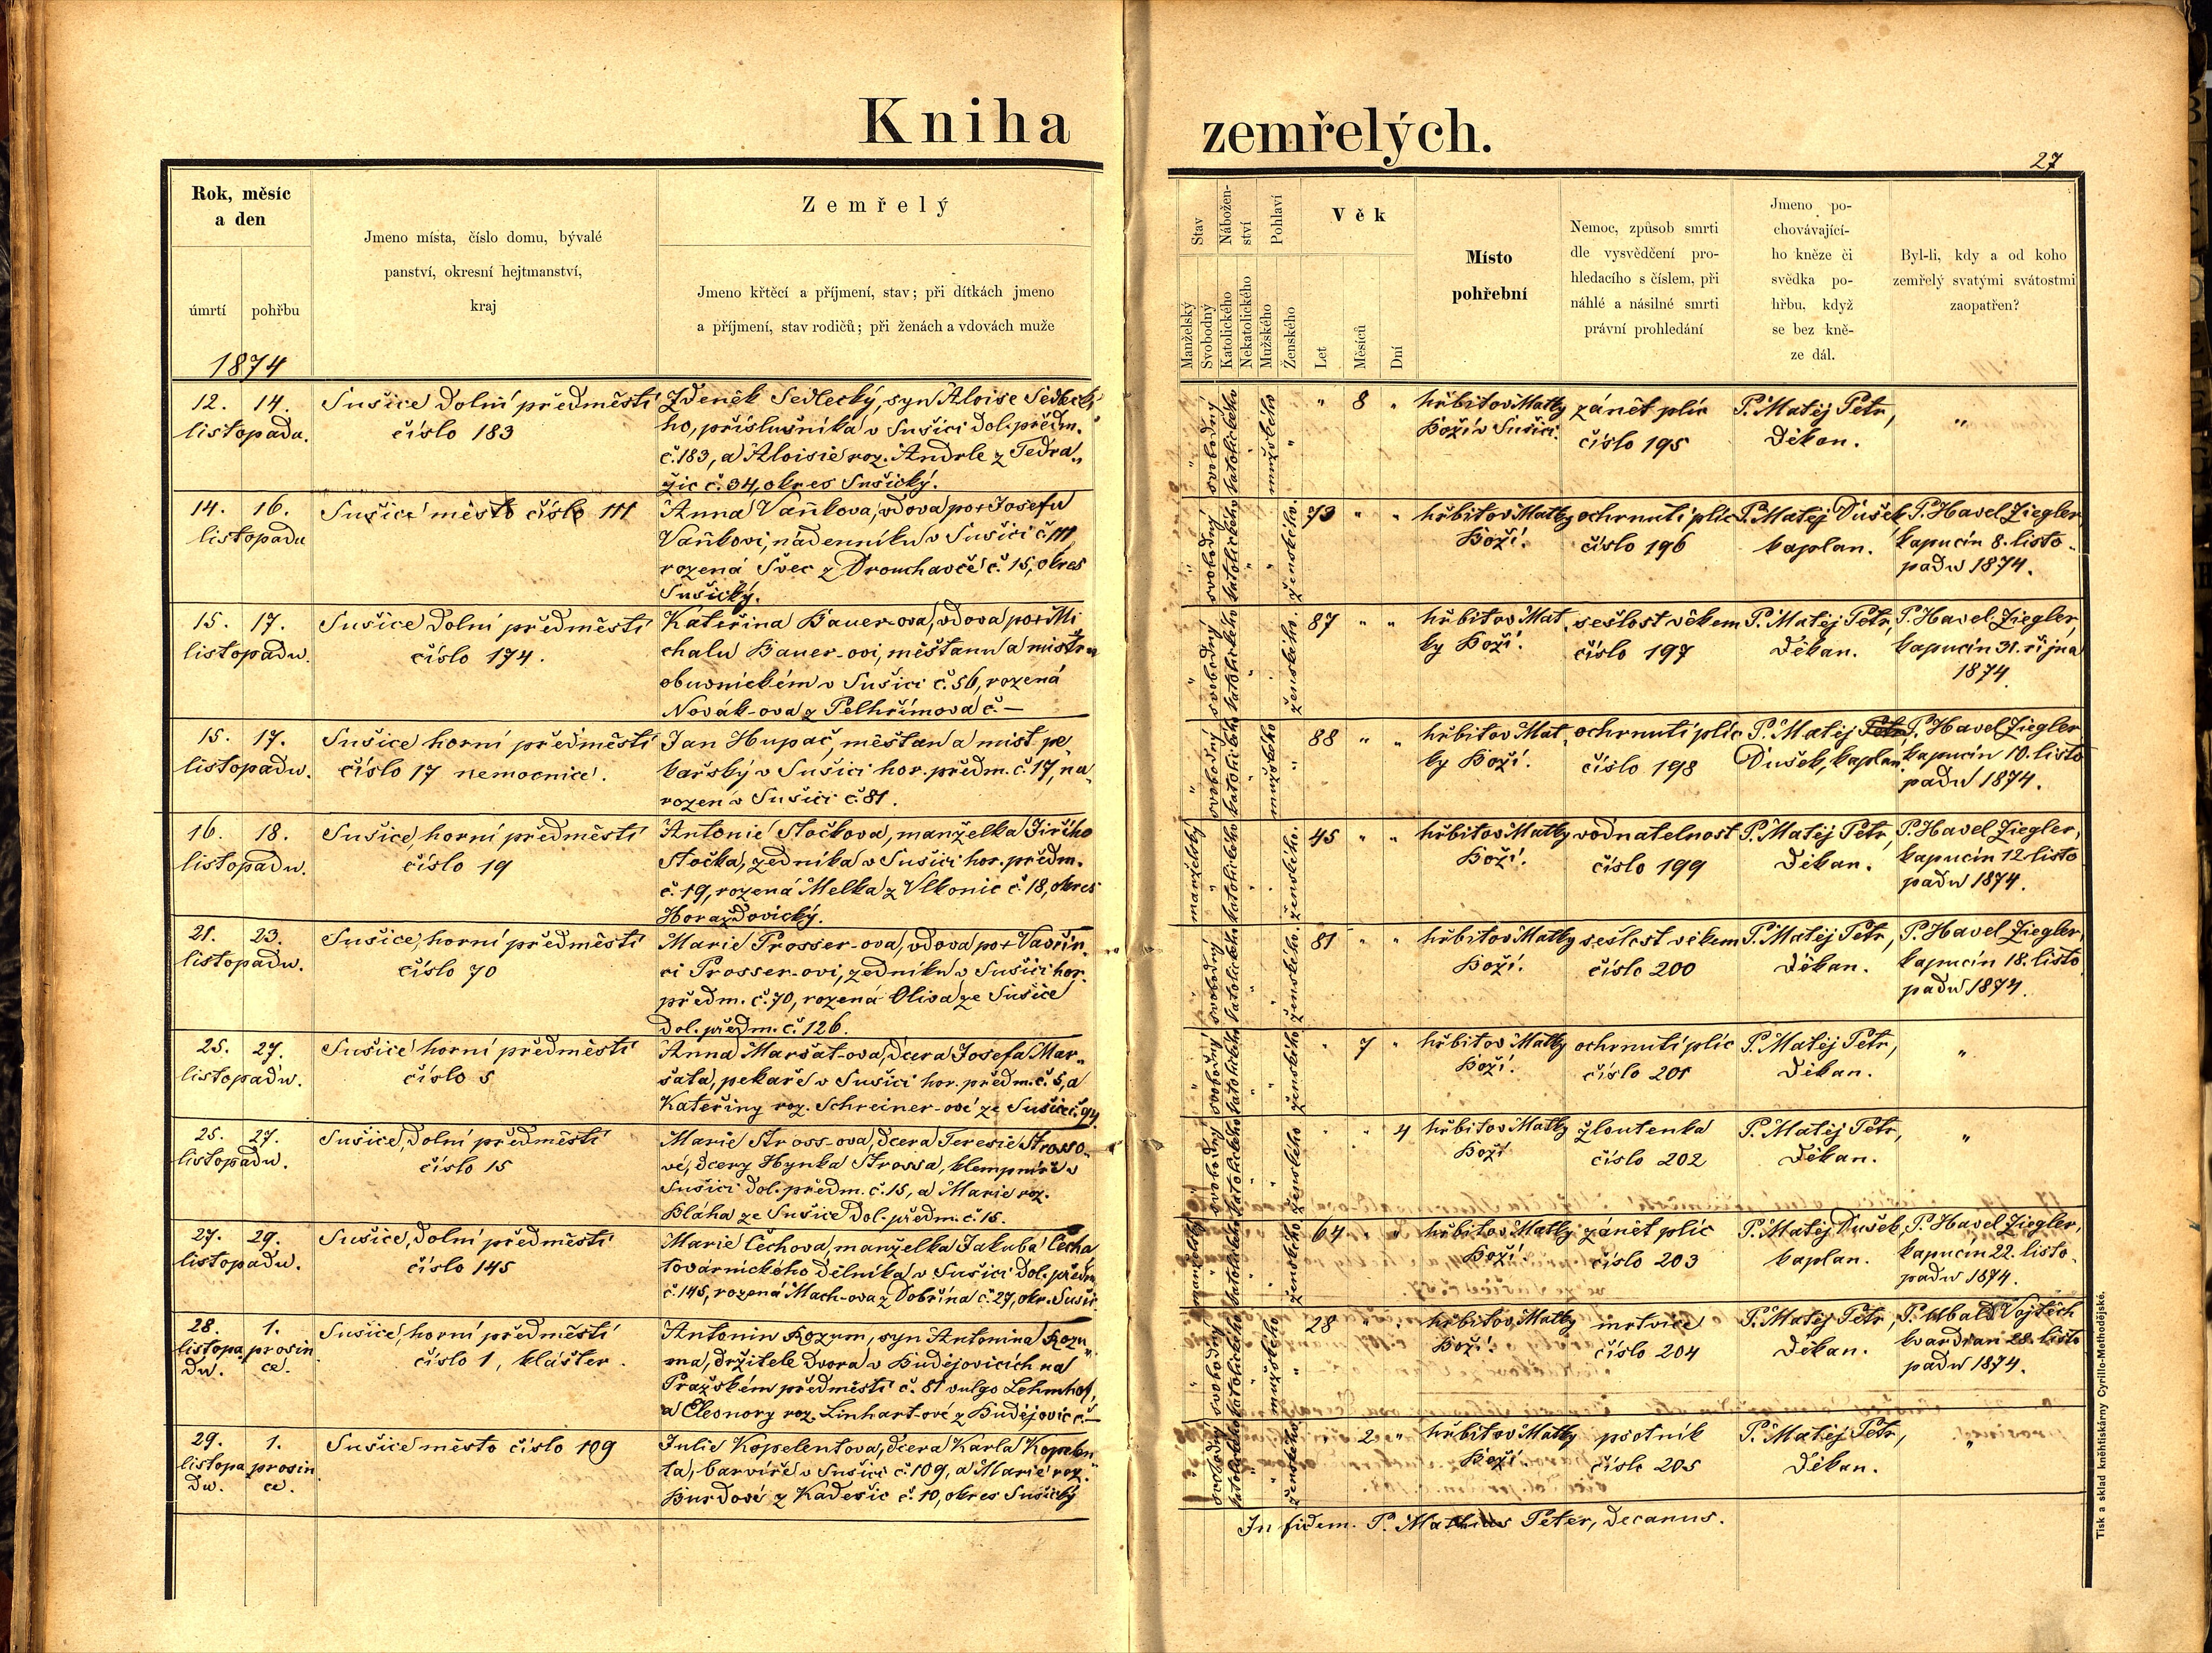 Kniha zemřelých.
27
Rok, měsíc
a den
úmrtí
pohřbu
1874
Jmeno místa, číslo domu, bývalé
panství, okresní hejtmanství,
kraj
Zemřelý
Jmeno křtěcí a příjmení, stav; při dítkách jmeno
a příjmení, stav rodičů; při ženách a vdovách muže
Stav
Manželský
Svobodný
Nábožen-
ství
Katolického
Nekatolického
Pohlaví
Mužského
Ženského
Věk
Let
Měsíců
Dní
Místo
pohřební
Nemoc, způsob smrti
dle vysvědčení pro-
hledacího s číslem, při
náhlé a násilné smrti
právní prohledání
Jmeno po-
chovávající-
ho kněze či
svědka po-
hřbu, když
se bez kně-
ze dál.
Byl-li, kdy a od koho
zemřelý svatými svátostmi
zaopatřen?
12. 14.
listopadu.
Sušice dolní předměstí
číslo 183
Zdeněk Sedlecký, syn Aloise Sedlecké
ho, příslušníka v Sušici dol. předm.
č. 183, a Aloisie roz. Andrle z Tedra„
žic č. 34, okres Sušický.
" svobodný katolického " mužského "
" 8 "
hřbitov Matky
Boží v Sušici.
zánět plic
číslo 195
P. Matěj Petr,
Děkan.
"
14. 16.
listopadu
Sušice město číslo 111
Anna Vaňkova, vdova po + Josefu
Vaňkovi, nádenníku v Sušici č. 111,
rozená Švec z Drouhavče č. 15, okres
Sušický.
" svobodný katolického " " ženského.
73 " "
hřbitov Matky
Boží.
ochrnutí plic
číslo 196
P. Matěj Dušek
kaplan.
P. Havel Ziegler,
kapucín 8. listo„
padu 1874.
15. 17.
listopadu.
Sušice dolní předměstí
číslo 174.
Kateřina Bauer-ova, vdova po + Mi
chalu Bauer-ovi, měšťanu a mistru
obuvnickém v Sušici č. 56, rozená
Novák-ova z Pelhřimova č. —
" svobodný katolického " " ženského.
87 " "
hřbitov Mat„
ky Boží.
sešlost věkem
číslo 197
P. Matěj Petr,
Děkan.
P. Havel Ziegler,
kapucín 31. října
1874
15. 17.
listopadu.
Sušice horní předměstí
číslo 17 nemocnice.
Jan Hupač, měšťan a mist. pe„
kařský v Sušici hor. předm. č. 17, na„
rozen v Sušici č. 81.
" svobodný katolického " mužského "
88 " "
hřbitov Mat„
ky Boží.
ochrnutí plic
číslo 198
P. Matěj Petr
Dušek, kaplan.
P. Havel Ziegler
kapucín 10. listo
padu 1874.
16. 18.
listopadu.
Sušice, horní předměstí
číslo 19
Antonie Stočkova, manželka Jiřího
Stočka, zedníka v Sušici hor. předm.
č. 19, rozená Melka z Vlkonic č. 18, okres
Horažďovický.
manželský " katolického " " ženského.
45 " "
hřbitov Matky
Boží.
vodnatelnost
číslo 199
P. Matěj Petr,
Děkan.
P. Havel Ziegler,
kapucín 12 listo
padu 1874.
21. 23.
listopadu.
Sušice, horní předměstí
číslo 70
Marie Prosser-ova, vdova po + Vavřin„
ci Prosser-ovi, zedníku v Sušici hor.
předm. č. 70, rozená Oliva ze Sušice
dol. předm. č. 126.
" svobodný katolického " " ženského.
81 " "
hřbitov Matky
Boží.
sešlost věkem
číslo 200
P. Matěj Petr,
Děkan.
P. Havel Ziegler,
kapucín 18. listo
padu 1874.
25. 27.
listopadu.
Sušice horní předměstí
číslo 5
Anna Maršat-ova, dcera Josefa Mar„
šata, pekaře v Sušici hor. předm. č. 5, a
Kateřiny roz. Schreiner-ové ze Sušice č. 94.
" svobodný katolického " " ženského
" 7 "
hřbitov Matky
Boží.
ochrnutí plic
číslo 201
P. Matěj Petr,
Děkan.
"
25. 27.
listopadu.
Sušice, dolní předměstí
číslo 15
Marie Stross-ova, dcera Teresie Strosso„
vé, dcery Hynka Strossa, klempíře v
Sušici dol. předm. č. 15, a Marie roz.
Bláha ze Sušice dol. předm. č. 15.
" svobodný katolického " " ženského
" " 4
hřbitov Matky
Boží
žloutenka
číslo 202
P. Matěj Petr,
Děkan.
"
27. 29.
listopadu.
Sušice, dolní předměstí
číslo 145
Marie Čechova, manželka Jakuba Čecha
továrnického dělníka v Sušici dol. předm
č. 145, rozená Mach-ova z Dobřína č. 27, okr. Sušic
manželský " katolického " " ženského
64 " "
hřbitov Matky
Boží
zánět plic
číslo 203
P. Matěj Dušek,
kaplan.
P. Havel Ziegler,
kapucín 22. listo„
padu 1874.
28. 1.
listopa prosin
du. ce.
Sušice, horní předměstí
číslo 1, klášter.
Antonín Rozum, syn Antonína Rozu„
ma, držitele dvora v Budějovicích na
Pražském předměstí č. 81 vulgo Lehmhof,
a Eleonory roz. Linhart-ové z Budějovic č. —
" svobodný katolického " mužského "
28 " "
hřbitov Matky
Boží.
mrtvice
číslo 204
P. Matěj Petr,
Děkan.
P. Ubald Vojtěch
kvardian 28. listo
padu 1874.
29. 1.
listopa prosin
du. ce.
Sušice město číslo 109
Julie Kopelentova, dcera Karla Kopelen
ta, barvíře v Sušici č. 109, a Marie roz.
Burdové z Kadešic č. 10, okres Sušický
" svobodný katolického " " ženského
" 2 "
hřbitov Matky
Boží
psotník
číslo 205
P. Matěj Petr,
Děkan.
"
In fidem. P. Mathias Peter, decanus.
Tisk a sklad kněhtiskárny Cyrillo-Methodějské.